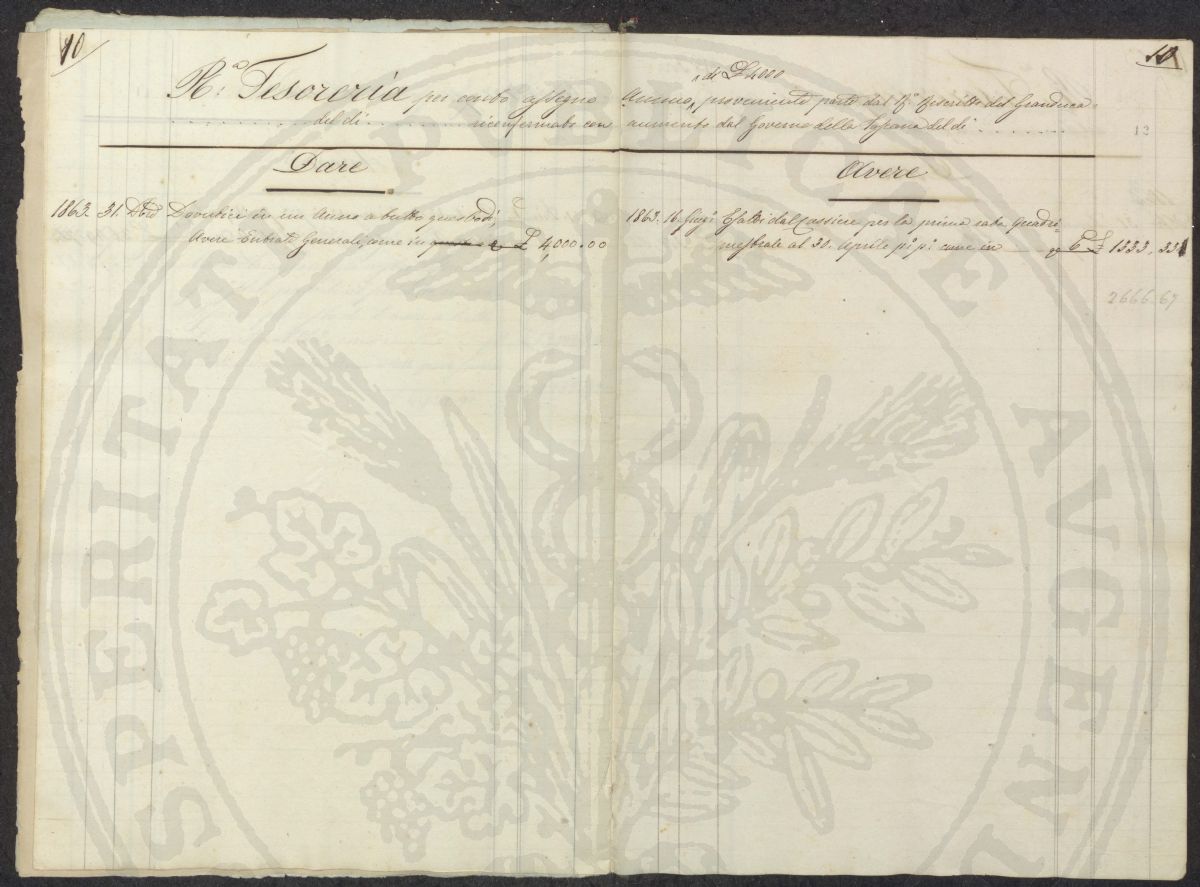 10
10
di £ 4000
R.ª Tesoreria per conto assegno Annuo, proveniente parte dal R.º Rescritto del Granduca
del dì . . . . . . . riconfermato con aumento dal Governo della Toscana del dì . . . . . . .
13
Dare
Avere
1863. 31. Dbre Dovutici in un Anno a tutto questo dì,
Avere Entrate Generali, come in £ 4,000.00
1863. 16. Giug. Esatti dal Cassiere per la prima rata Quadri=
mestrale al 30. Aprile p.º p.º come in 6 £ 1333,33
2666.67
SPERITATE PUBLICAE AVGEND